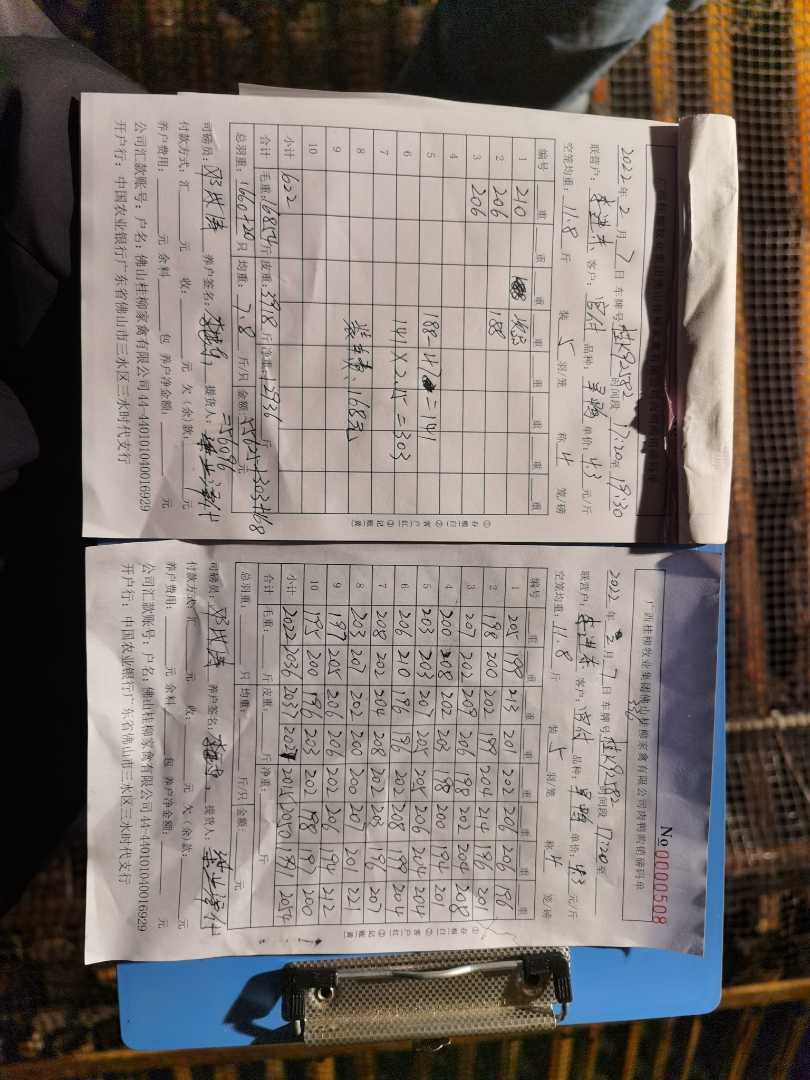 2022年2月7日 车牌号桂K92582时间段17:20至19:30
联营户: 客户: 品种: 单价:4.3元/斤
空笼均重:11.8斤 装5羽/笼 称4笼/磅
编号 重 重 重 重 重 重 重 重
1 210 163
2 206 188
3 206
4
5 188-47=141
6 141×2.15=303
7
8 装车费:168元
9
10
小计 622
合计 毛重:16854斤 皮重:3918斤 净重:12936斤
总羽重:1660 只 均重:7.8斤/只 金额:55625+303+168元
=56096
司磅员: 养户签名: 提货人:
付款方式:汇 元 收: 元 欠(余)款: 元
养户费用: 元 余料 包 养户净金额: 元
公司汇款账号:户名:佛山桂柳家禽有限公司44-440101040016929
开户行:中国农业银行广东省佛山市三水区三水时代支行
①存根白 ②客户红 ③记账黄
广西桂柳牧业集团佛山桂柳家禽有限公司肉鸭购销磅码单
№0000508
2022年2月7日 车牌号桂K92582时间段17:20至
联营户: 客户: 品种: 单价:4.3元/斤
空笼均重:11.8斤 装5羽/笼 称4笼/磅
编号 重 重 重 重 重 重 重 重
1 205 199 213 201 202 206 206 196
2 198 200 202 199 204 214 196 201
3 207 202 209 206 198 202 204 208
4 200 208 202 203 198 200 194 201
5 203 203 207 205 205 206 204 204
6 206 210 196 196 202 208 199 204
7 208 202 204 208 202 203 196 207
8 203 207 202 200 200 207 201 221
9 197 205 206 206 202 206 194 212
10 195 200 196 203 202 198 197 200
小计 2022 2036 2037 2027 2015 2050 1991 2054
合计 毛重: 斤 皮重: 斤 净重: 斤
总羽重: 只 均重: 斤/只 金额: 元
司磅员: 养户签名: 提货人:
付款方式:汇 元 收: 元 欠(余)款: 元
养户费用: 元 余料 包 养户净金额: 元
公司汇款账号:户名:佛山桂柳家禽有限公司44-440101040016929
开户行:中国农业银行广东省佛山市三水区三水时代支行
①存根白 ②客户红 ③记账黄